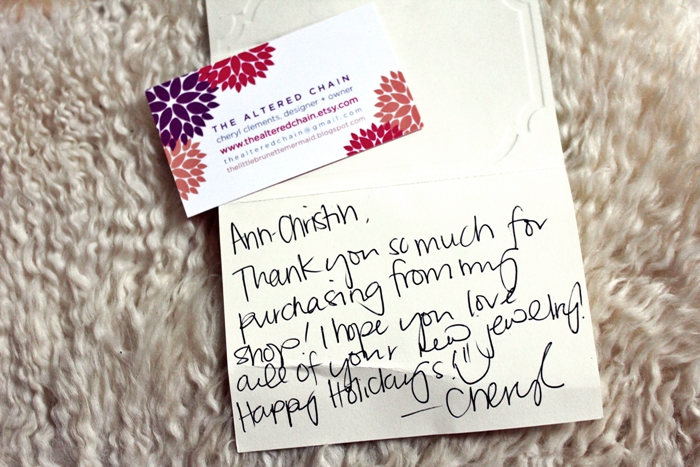 THE ALTERED CHAIN
cheryl clements, designer + owner
www.thealteredchain.etsy.com
thealteredchain@gmail.com
thelittlebrunettemermaid.blogspot.com
Ann-Christin,
Thank you so much for
purchasing from my
shop! I hope you love
all of your new jewelry!
Happy Holidays!
—Cheryl